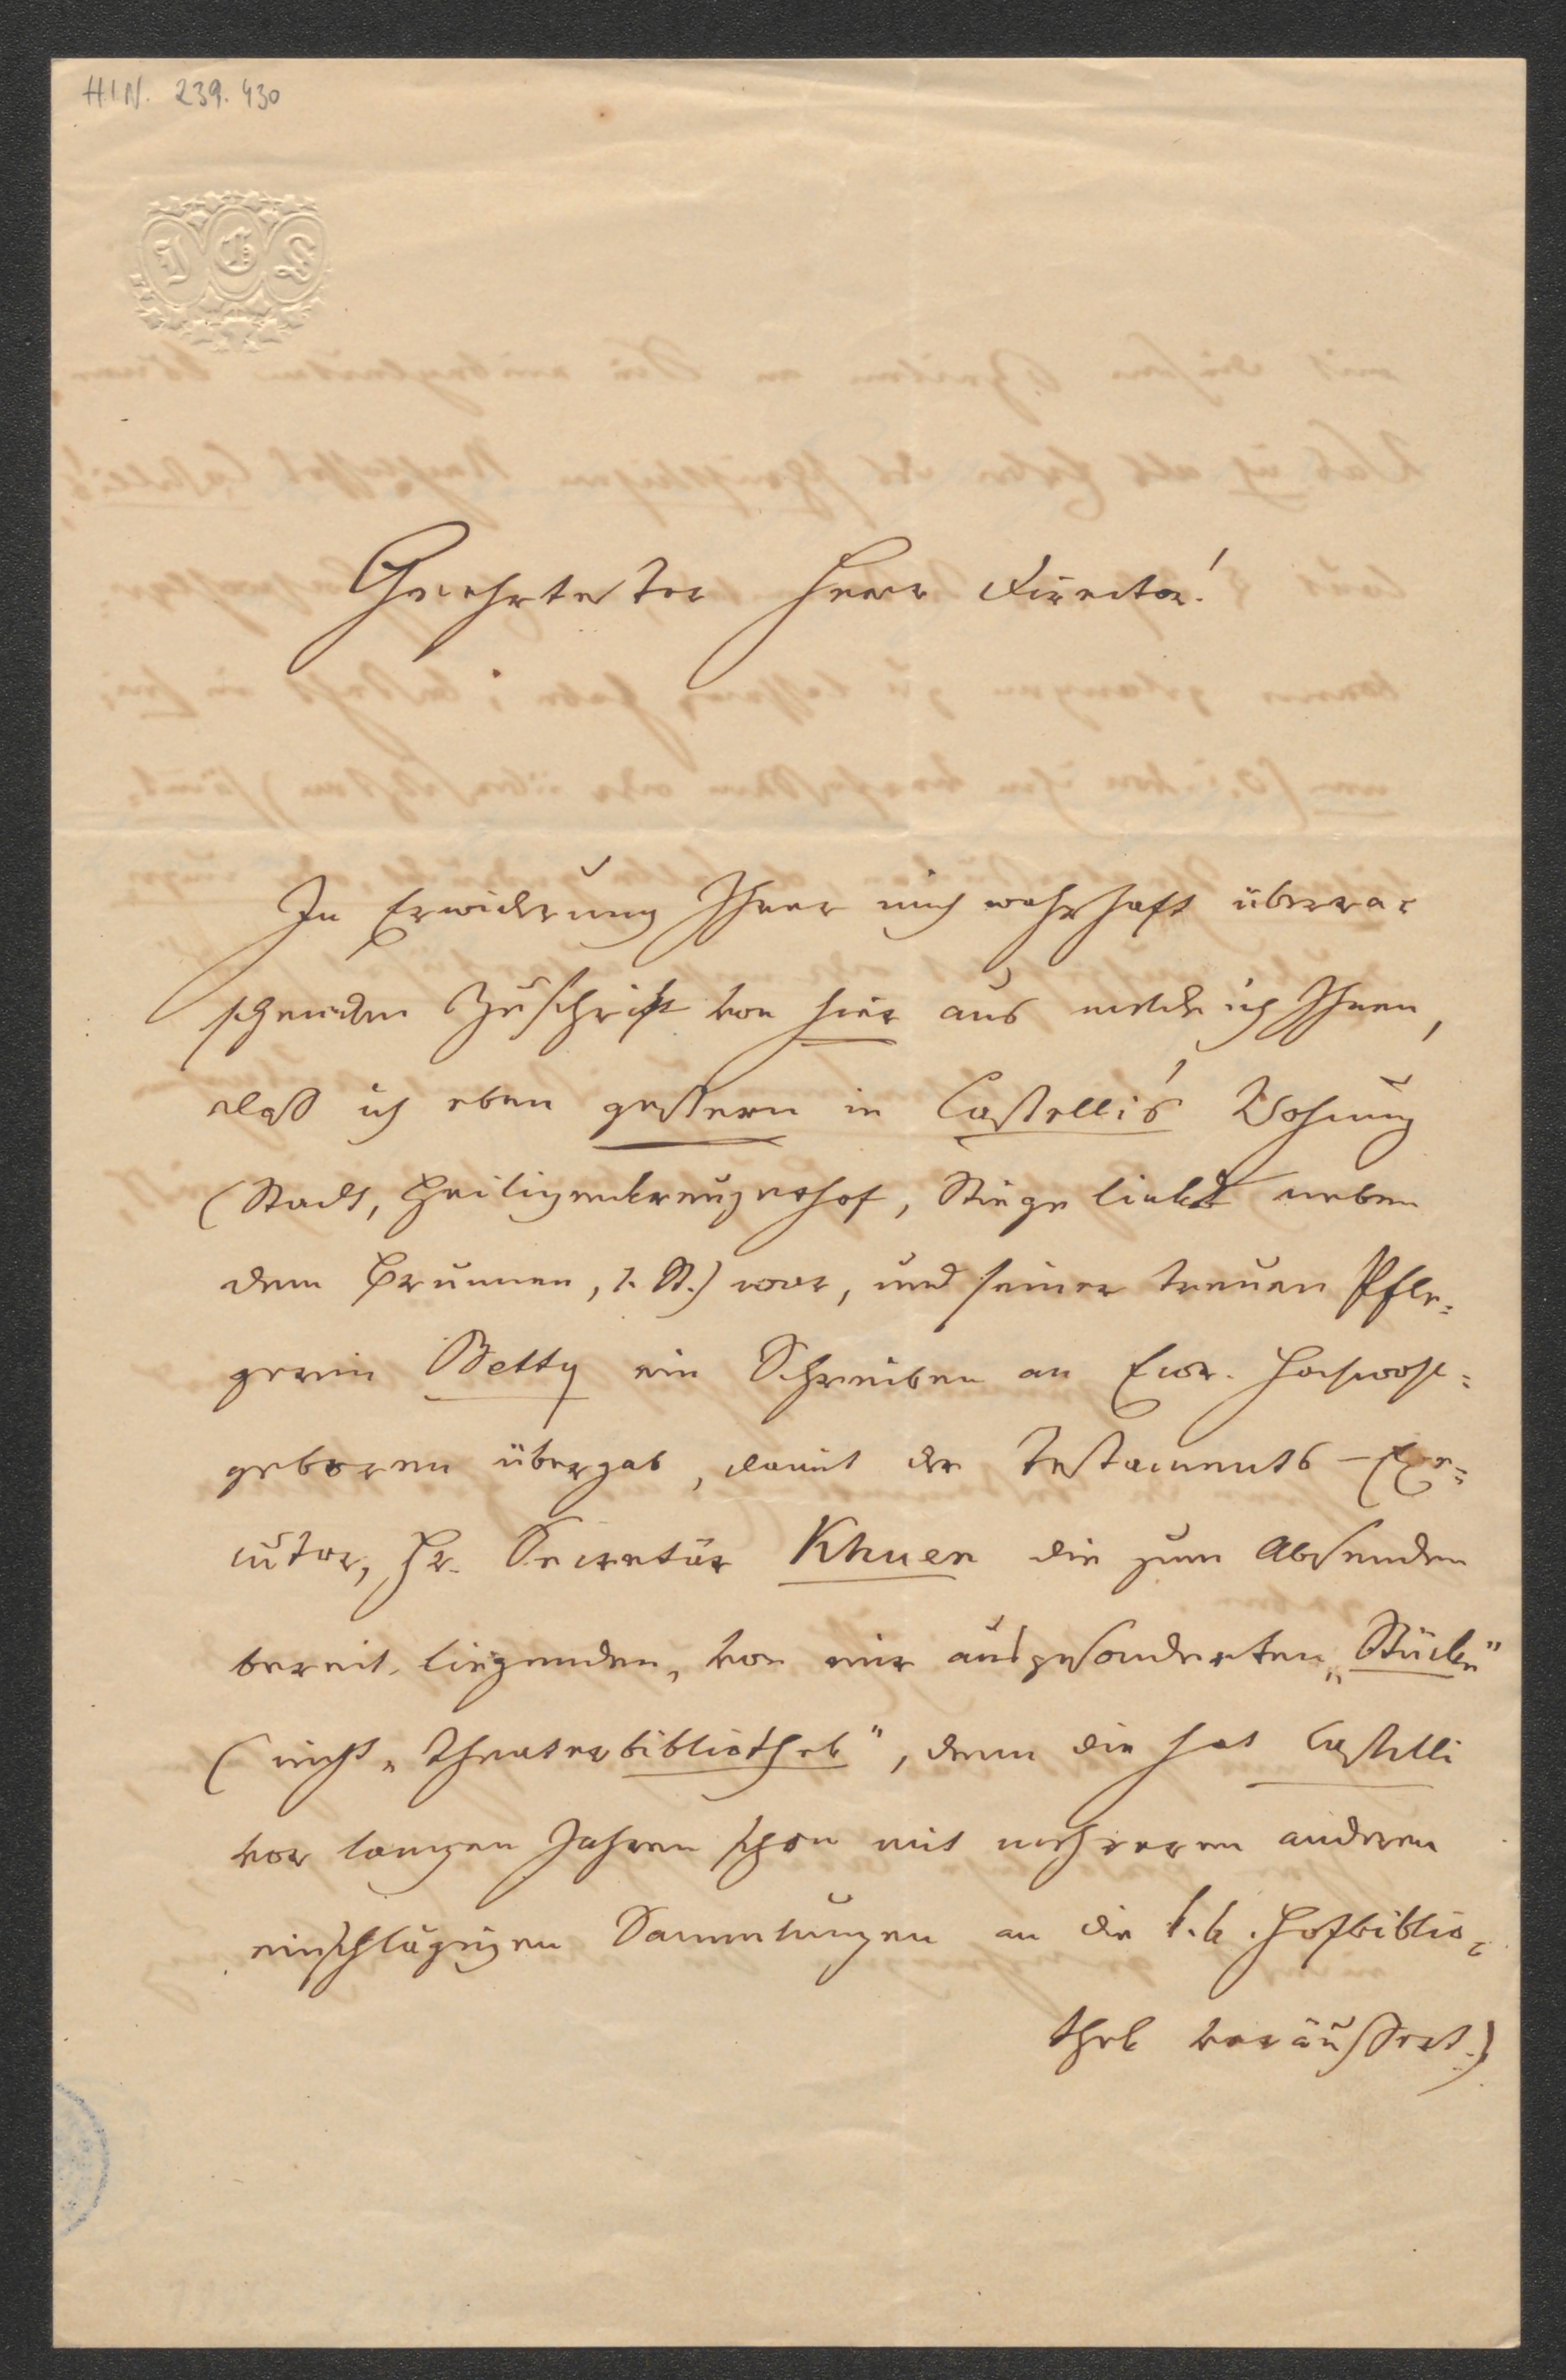 H.I.N. 239.430
J G S
Geehrtester Herr Director!
In Erwiderung Ihrer mich wahrhaft überra-
schenden Zuschrift von hier aus melde ich Ihnen,
daß ich eben gestern in Castelli's Wohnung
(Stadt, Heiligenkreuzerhof, Stiege links neben
dem Brunnen, 1. St.) war, und seiner treuen Pfle-
gerin Betty ein Schreiben an Euer Hochwohl-
geboren übergab, damit der Testaments-Exe-
cutor, Hr. Secretär Khuen die zum Absenden
bereit liegenden, von mir ausgesonderten „Stücke"
(nicht „Theaterbibliothek", denn die hat Castelli
vor langen Jahren schon mit mehreren anderen
einschlägigen Sammlungen an die k.k. Hofbiblio-
thek veräußert.)